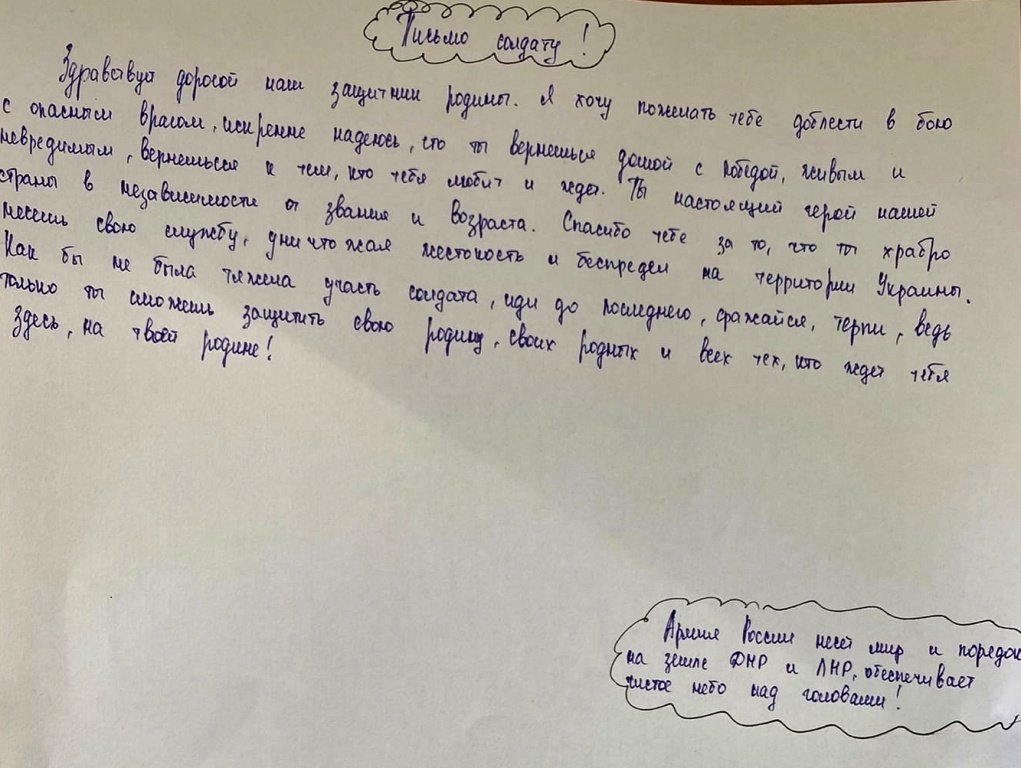 Письмо солдату!
Здравствуй дорогой наш защитник родины. Я хочу пожелать тебе доблести в бою
с опасным врагом, искренне надеюсь, что ты вернешься домой с победой, живым и
невредимым, вернешься к тем, кто тебя любит и ждет. Ты настоящий герой нашей
страны в независимости от звания и возраста. Спасибо тебе за то, что ты храбро
несешь свою службу, уничтожая жестокость и беспредел на территории Украины.
Как бы не была тяжела участь солдата, иди до последнего, сражайся, терпи, ведь
только ты сможешь защитить свою родину, своих родных и всех тех, кто ждет тебя
здесь, на твоей родине!
Армия России несет мир и порядок
на земле ДНР и ЛНР, обеспечивает
чистое небо над головами!